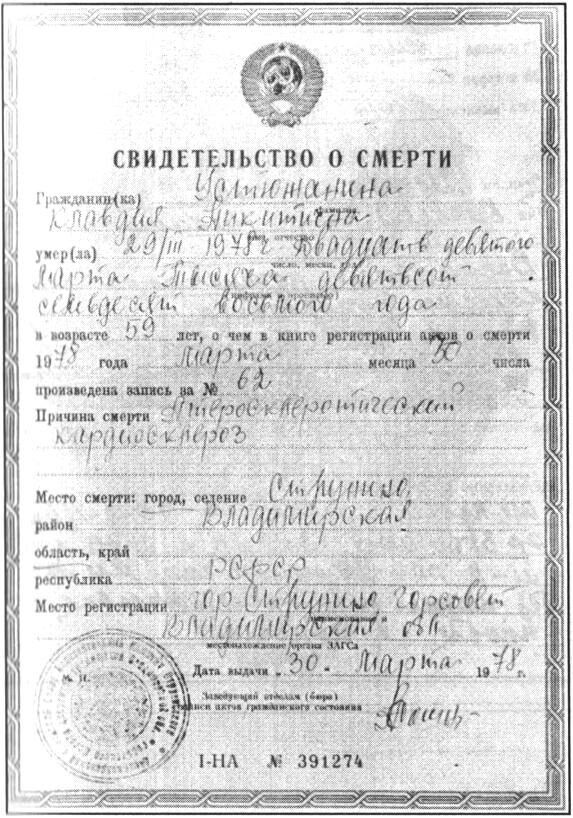 СВИДЕТЕЛЬСТВО О СМЕРТИ
Гражданин(ка) Устюжанина
фамилия
Клавдия Никитична
имя, отчество
умер(ла) 29/III 1978 г двадцать девятого
число, месяц,
Марта Тысяча девятьсот
семьдесят восьмого года
в возрасте 59 лет, о чем в книге регистрации актов о смерти
1978 года Марта месяца 30 числа
произведена запись за № 62
Причина смерти Атеросклеротический
кардиосклероз
Место смерти: город, селение Струнино
район Владимирская
область, край
республика РСФСР
Место регистрации гор. Струнино горсовет
наименование и
Владимирская обл
местонахождение органа ЗАГСа
Дата выдачи „30" Марта 1978 г.
М. П.
Заведующий отделом (бюро)
записи актов гражданского состояния
I-НА № 391274